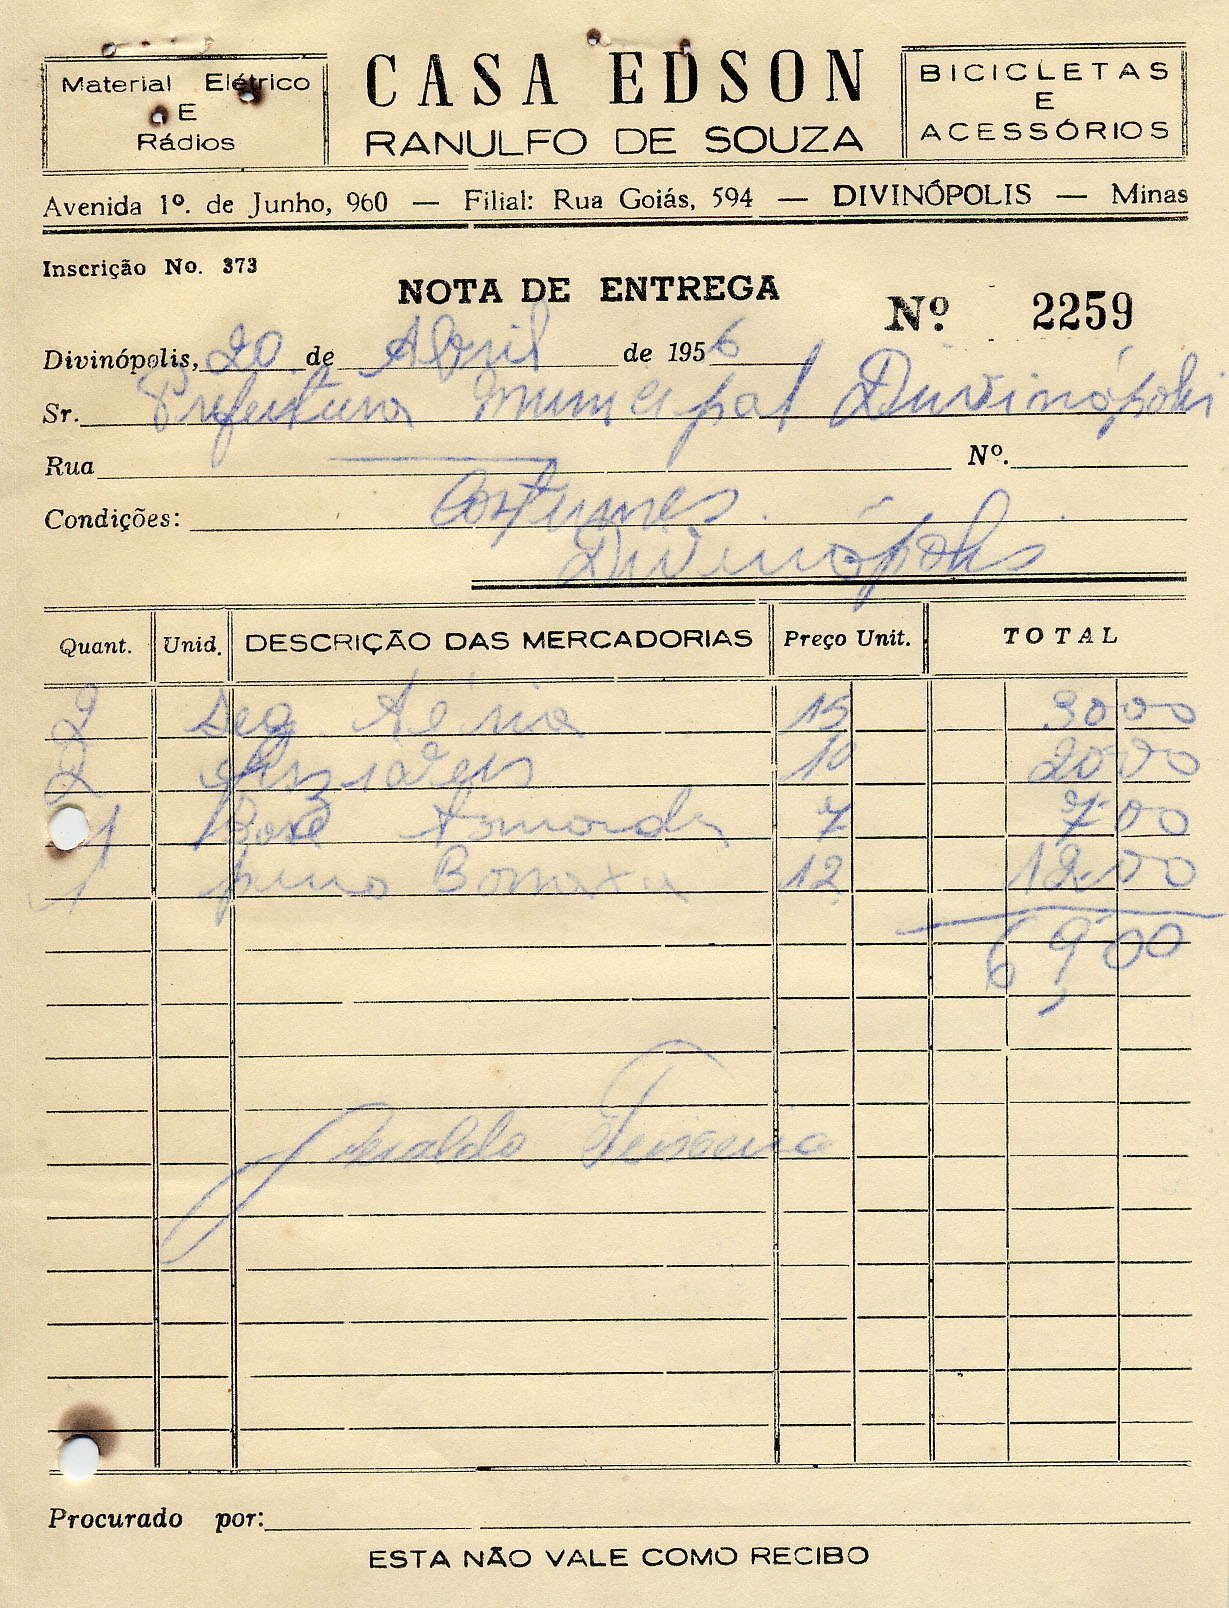 Material Elétrico
E
Rádios
CASA EDSON
RANULFO DE SOUZA
BICICLETAS
E
ACESSÓRIOS
Avenida 1º. de Junho, 960 — Filial: Rua Goiás, 594 — DIVINÓPOLIS — Minas
Inscrição No. 373
NOTA DE ENTREGA
Nº. 2259
Divinópolis, 20 de Abril de 1956
Sr. Prefeitura Municipal Divinópolis
Rua Nº.
Condições: Costumes
Divinópolis
Quant. Unid. DESCRIÇÃO DAS MERCADORIAS Preço Unit. TOTAL
2 Seg. 15 30 00
2 10 20 00
1 7 7.00
1 pino 12 12.00
69,00
Geraldo Teixeira
Procurado por:
ESTA NÃO VALE COMO RECIBO